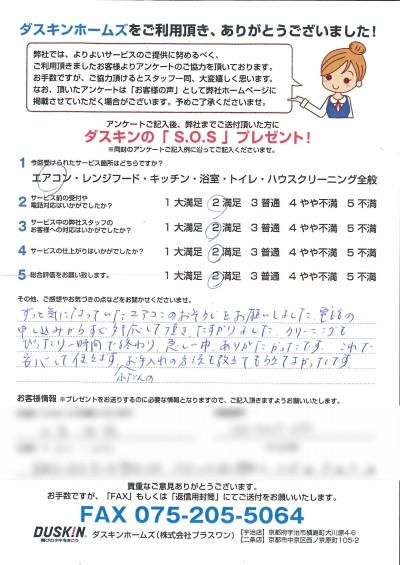 ダスキンホームズをご利用頂き、ありがとうございました!
弊社では、よりよいサービスのご提供に努めるべく、
ご利用頂きましたお客様よりアンケートのご協力を頂いております。
お手数ですが、ご協力頂けるとスタッフ一同、大変嬉しく思います。
なお、頂いたアンケートは「お客様の声」として弊社ホームページに
掲載させていただく場合がございます。予めご了承くださいませ。
アンケートご記入後、弊社までご送付頂いた方に
ダスキンの「S.O.S」プレゼント!
※同封のアンケートご記入例に沿ってご記入くださいませ。
1 今回受けられたサービス箇所はどちらですか?
エアコン・レンジフード・キッチン・浴室・トイレ・ハウスクリーニング全般
2 サービス前の受付や
電話対応はいかがでしたか? 1 大満足 2 満足 3 普通 4 やや不満 5 不満
3 サービス中の弊社スタッフの
お客様への対応はいかがでしたか? 1 大満足 2 満足 3 普通 4 やや不満 5 不満
4 サービスの仕上がりはいかがでしたか? 1 大満足 2 満足 3 普通 4 やや不満 5 不満
5 総合評価をお願い致します。 1 大満足 2 満足 3 普通 4 やや不満 5 不満
その他、ご感想やお気づきの点などをお聞かせくださいませ。
ずっと気になっていたエアコンのおそうじをお願いしました。電話の
申し込みからすぐ対応して頂き、たすかりました。クリーニングも
ぴったり一時間で終わり、忙しい中、ありがたかったです。これで
安心して使えます。ふだんのお手入れの方法も教えてもらえてよかったです。
お客様情報 ※プレゼントをお送りするのに必要な情報となりますので、ご記入頂きますようお願いいたします。
貴重なご意見ありがとうございます。
お手数ですが、「FAX」もしくは「返信用封筒」にてご送付をお願いいたします。
FAX 075-205-5064
DUSKIN
喜びのタネをまこう
ダスキンホームズ(株式会社プラスワン)
[宇治店] 京都府宇治市槇島町大川原4-6
[二条店] 京都市中京区西ノ京原町105-2